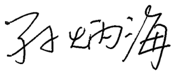 孙炳海